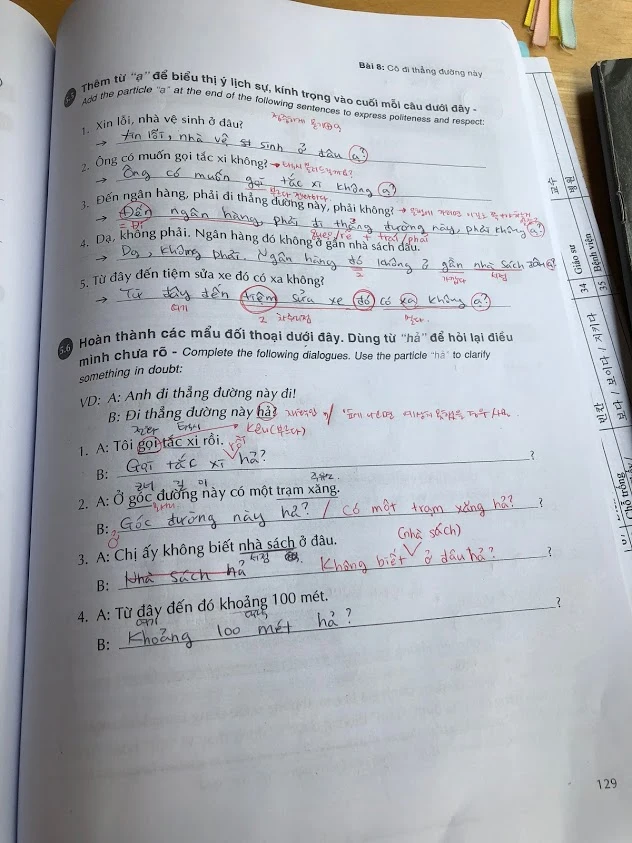 Bài 8: Cô đi thẳng đường này
5.5 Thêm từ "ạ" để biểu thị ý lịch sự, kính trọng vào cuối mỗi câu dưới đây -
Add the particle "ạ" at the end of the following sentences to express politeness and respect:
1. Xin lỗi, nhà vệ sinh ở đâu?
→ Xin lỗi, nhà vệ sinh ở đâu ạ?
2. Ông có muốn gọi tắc xi không?
→ Ông có muốn gọi tắc xi không ạ?
3. Đến ngân hàng, phải đi thẳng đường này, phải không?
→ Đến ngân hàng, phải đi thẳng đường này, phải không ạ?
= Đi
4. Dạ, không phải. Ngân hàng đó không ở gần nhà sách đâu.
→ Dạ, không phải. Ngân hàng đó không ở gần nhà sách đâu ạ.
서점
5. Từ đây đến tiệm sửa xe đó có xa không?
→ Từ đây đến tiệm sửa xe đó có xa không ạ?
여기
멀다.
5.6 Hoàn thành các mẩu đối thoại dưới đây. Dùng từ "hả" để hỏi lại điều
mình chưa rõ - Complete the following dialogues. Use the particle "hả" to clarify
something in doubt:
VD: A: Anh đi thẳng đường này đi!
B: Đi thẳng đường này hả?
택시 kêu (부르다)
1. A: Tôi gọi tắc xi rồi.
rồi
B: Gọi tắc xi hả? ?
주유소
2. A: Ở góc đường này có một trạm xăng.
B: Ở Góc đường này hả? / Có một trạm xăng hả? ?
(nhà sách)
3. A: Chị ấy không biết nhà sách ở đâu.
서점
B: Nhà sách hả Không biết ở đâu hả? ?
4. A: Từ đây đến đó khoảng 100 mét.
여기
B: Khoảng 100 mét hả? ?
129
교수
병원
34 Giáo sư
35 Bệnh viện
반찬
보다 / 보이다 / 지키다
Chỗ trống